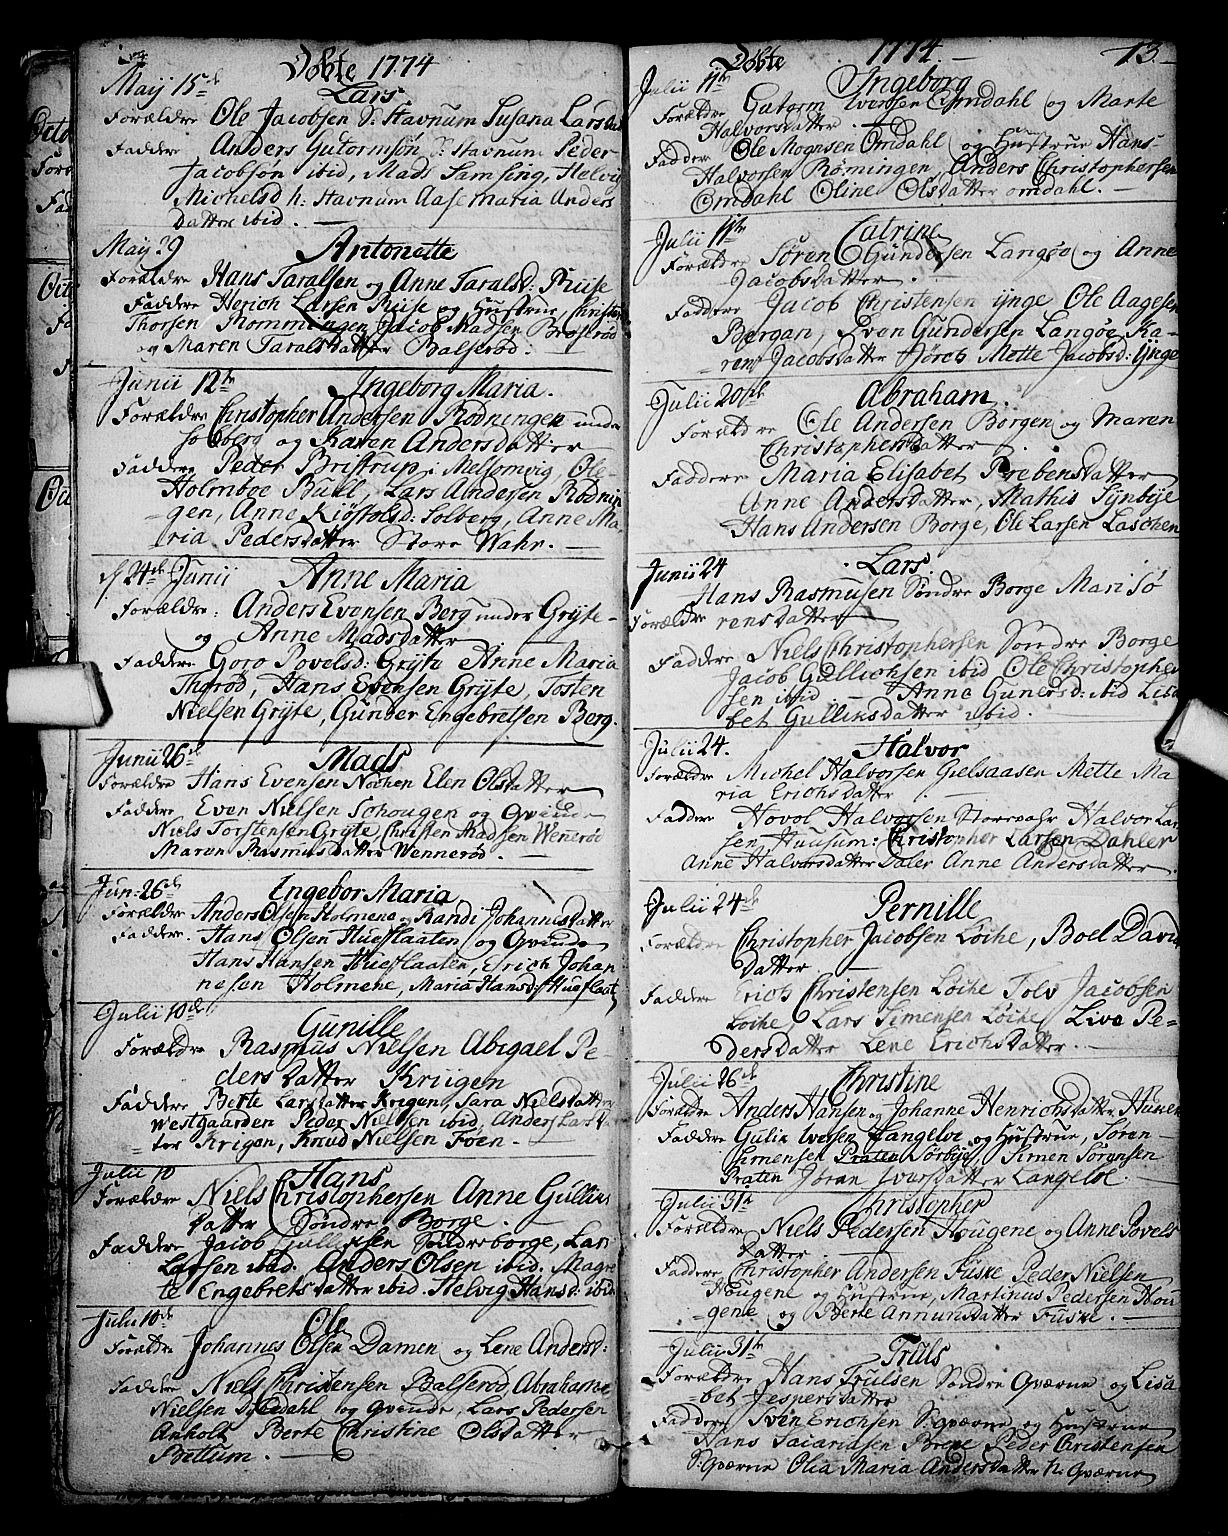 Döbte 1774
Maÿ 15de
Lars.
Forældre Ole Jacobsen S: Stavnum Susana Lars
Faddere Anders Gutormsön S: Stavnum Peder
Jacobsön ibid, Mads Semsing, Helvig
Michelsd h: Stavnum Aase Maria Anders
Datter ibid. —
Maÿ 29 Antonette
Forældre Hans Taralsen og Anne Taralsd: Riise
Faddere Herich Larsen Riise og Hustrue, Christen
Thorsen Romminngen Jacob Madsen Brosrød
og Maren Taralsdatter Balserød.
Junii 12te Ingeborg Maria.
Forældre Christopher Andersen Rödningen under
Solberg og Karen Andersdatter
Faddere Peder Bristrup i Melsomvig, Ole
Holmboe Buill, Lars Andersen Rödnin
gen, Anne Kiöstolsd: Solberg, Anne Ma
ria Pedersdatter Store Wahr. —
d 24de Junii Anne Maria
Forældre: Anders Evensen Berg under Grÿte
og Anne Madsdatter
Faddere Goro Povelsd: Grÿte Anne Maria
Thorød, Hans Evensen Grÿte, Tosten
Nielsen Grÿte, Gunder Engebretsen Berg.
Junii 26de Mads
Forældre Hans Evensen Nochen Elen Olsdatter
Faddere Even Nielsen Schougen og Qvinde
Niels Torstensen Grÿte Christen Madsen Wennerød
Maren Rasmusdatter Wennerød. —
Jun: 26de Ingebor Maria
Forældre Anders Olsen Holmene og Randi Johannesdatter
Faddere. Hans Olsen Hueflaaten og Qvinde
Hans Hansen Hueflaaten, Erich Johan
nesen Holmene, Maria Hansd: Hueflaat
Julii 10de
Gunille
Forældre Rasmus Nielsen Abigael Pe-
dersdatter Kriigen
Faddere Berte Larsdatter Krigen, Sara Nielsdatter
Westgaarden Peder Nielsen ibid, Anders Lars
ter Krigen, Knud Nielsen Foen. —
Julii 10 Hans
Forældre Niels Christophersen Anne Gullics
datter Söndre Borge. —
Faddere Jacob Gullichsen Söndreborge, Lars
Larsen ibid. Anders Olsen ibid. Magre
te Engebretsdatter ibid. Helvig Hansd: ibid
Julii 10de Ole
Forældre Johannes Olsen Damen og Lene Andersd:
Faddere Niels Christensen Balserød, Abraham
Nielsen og Qvinde, Lars Pedersen
Anholt Berte Christine Olsdatter
Bettum. —
Döbte 1774. 13.
Julii 11te Ingeborg
Forældre Gutorm Iversen Omdahl og Marte
Halvorsdatter. —
Faddere Ole Mognsen Omdahl og Hustrue Hans
Halvorsen Römingen, Anders Christophersen
Omdahl Oline Olsdatter omdahl. —
Julii 11te Catrine
Forældre Sören Gundersen Langöe og Anne
Jacobsdatter
Faddere Jacob Christensen ÿnge Ole Aagesen
Bergan, Even Gundersen Langöe, Ka-
ren Jacobsdatter Mette Jacobsd: ÿnge
Julii 20de Abraham.
Forældre Ole Andersen Borgen og Maren
Christophersdatter
Faddere Maria Elisabet Prebensdatter
Anne Andersdatter, Mathis Sÿnbÿe
Hans Andersen Borge, Ole Larsen Laschen
Junii 24 Lars.
Hans Rasmusen Söndre Borge Mari Sö
Forældre rensdatter
Faddere Niels Christophersen Söndre Borge
Jacob Gullichsen ibid Ole Christopher
sen ibid — Anne Gunersd: ibid Lisa
bet Gulliksdatter ibid.
Julii 24. Halvor
Forældre Michel Halvorsen Gielsaasen Mette Ma
ria Erichsdatter
Faddere Hovol Halvorsen Storevahr Halvor Lar
sen Huusum: Christopher Larsen Dahler
Anne Halvorsdatter Daler Anne Andersdatter.
Julii 24de Pernille
Forældre Christopher Jacobsen Löche, Boel David
datter —
Faddere Erich Christensen Löche Tolv Jacobsen
Löche, Lars Simensen Löche Live Pe-
dersdatter Lene Erichsdatter. —
Julii 26de Christine
Forældre Anders Hansen og Johanne Henrichsdatter
Faddere Gulic Iversen Langeloe og Hustrue, Sören
Simensen Praten Sörbÿe, Simen Sörensen
Praten Jöran Iversdatter Langeloe.
Julii 31te Christopher
Forældre Niels Pedersen Hougene og Anne Povels
datter
Faddere Christopher Andersen Fuske Peder Nielsen
Hougene og Hustrue, Martinus Pedersen Hou
gene og Berte Annunsdatter Fuske. —
Julii 31te Truls
Forældre Hans Trulsen Söndre Qværne og Lisa
bet Jespersdatter
Faddere Sven Erichsen S: Qværne og Hustrue
Hans Saiariasen Breve Peder Christensen
S: Qværne Olia Maria Andersdatter N: Qværne